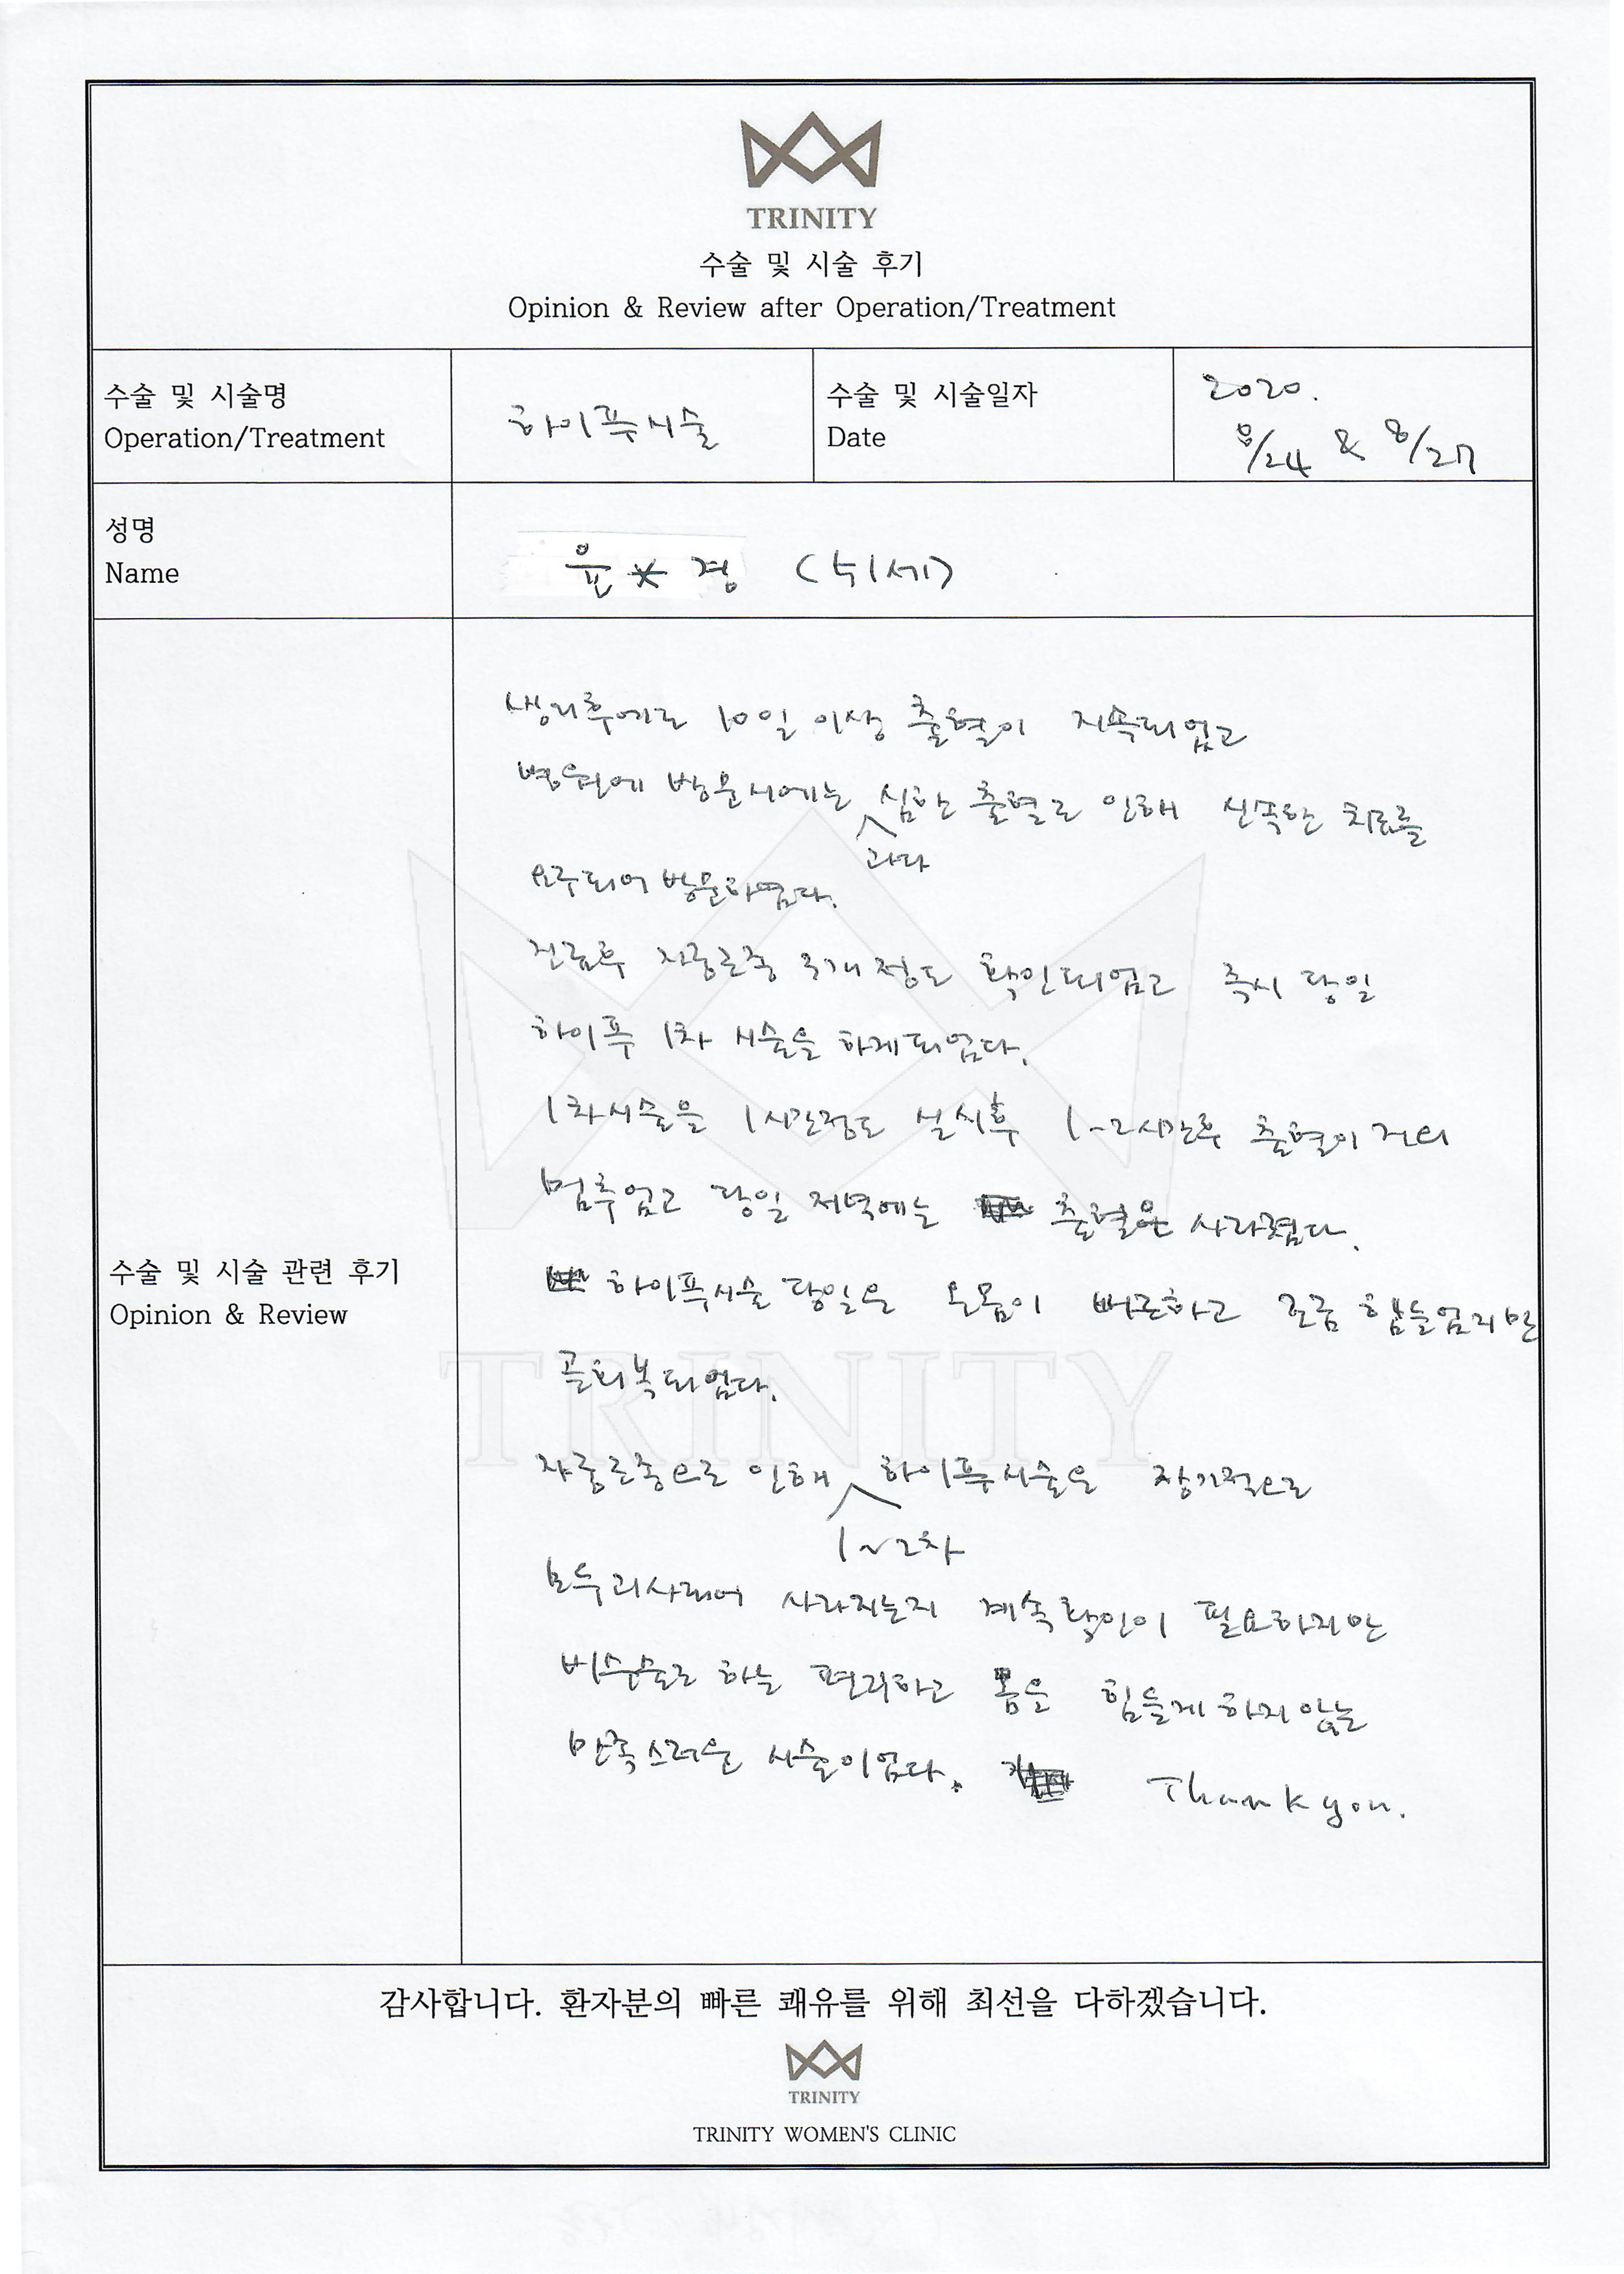 TRINITY
수술 및 시술 후기
Opinion & Review after Operation/Treatment
수술 및 시술명
Operation/Treatment
하이푸시술
수술 및 시술일자
Date
2020.
8/24 & 8/27
성명
Name
윤*경
수술 및 시술 관련 후기
Opinion & Review
생리후에도 10일 이상 출혈이 지속되었고
병원에 방문시에는 과다 심한 출혈로 인해 신속한 치료를
요구되어 방문하였다.
진료후 자궁근종 3개 정도 확인되었고 즉시 당일
하이푸 1차 시술을 하게되었다.
1차시술을 1시간정도 실시후 1~2시간후 출혈이 거의
멈추었고 당일 저녁에는 출혈은 사라졌다.
하이푸시술 당일은 온몸이 뻐근하고 조금 힘들었지만
곧회복되었다.
자궁근종으로 인해 1~2차 하이푸시술은 장기적으로
모두괴사되어 사라지는지 계속확인이 필요하지만
비수술로 하는 편리하고 몸을 힘들게하지않는
만족스러운 시술이었다. Thank you.
감사합니다. 환자분의 빠른 쾌유를 위해 최선을 다하겠습니다.
TRINITY
TRINITY WOMEN'S CLINIC